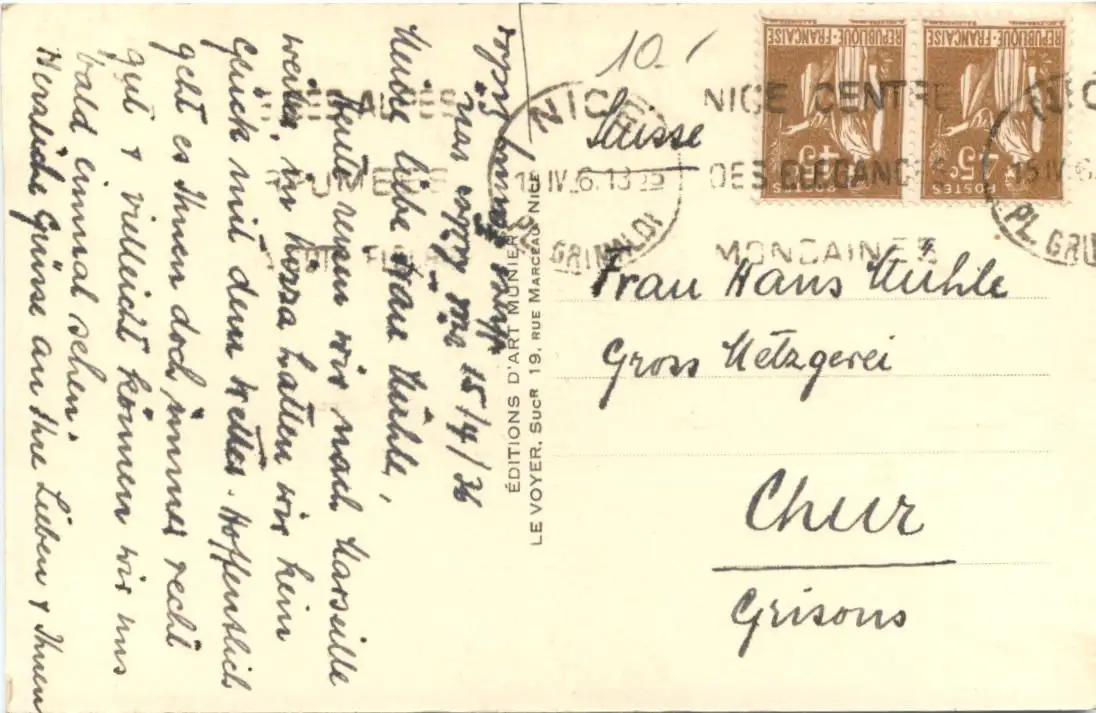 15/4/36
Meine liebe Frau Mühle,
Heute reisen wir nach Marseille
weiter, in Nizza hatten wir kein
Glück mit dem Wetter. Hoffentlich
geht es Ihnen doch immer recht
gut & vielleicht können wir uns
bald einmal sehen.
Herzliche Grüsse an Ihre Lieben & Ihnen
ÉDITIONS D'ART MUNIER
LE VOYER, SUCR 19, RUE MARCEAU NICE
10.-
Suisse
Frau Hans Mühle
Gross Metzgerei
Chur
Grisons
RÉPUBLIQUE-FRANÇAISE
45c
POSTES
RÉPUBLIQUE-FRANÇAISE
45c
POSTES
NICE
15 IV 36. 18 25
PL. GRIMALDI
NICE CENTRE
DES ELEGANCES
MONDAINES
NIC
15 IV 36
PL. GRI